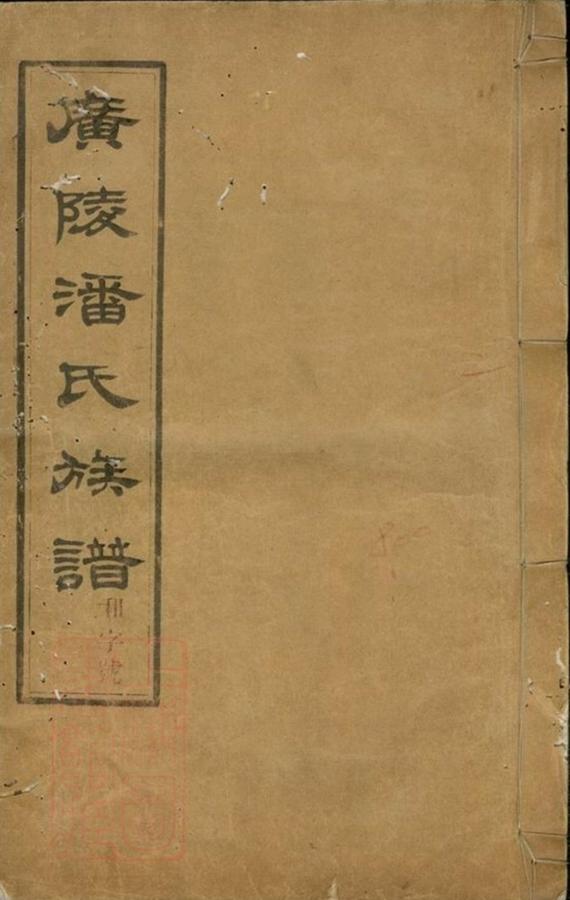 廣陵潘氏族譜
和字號